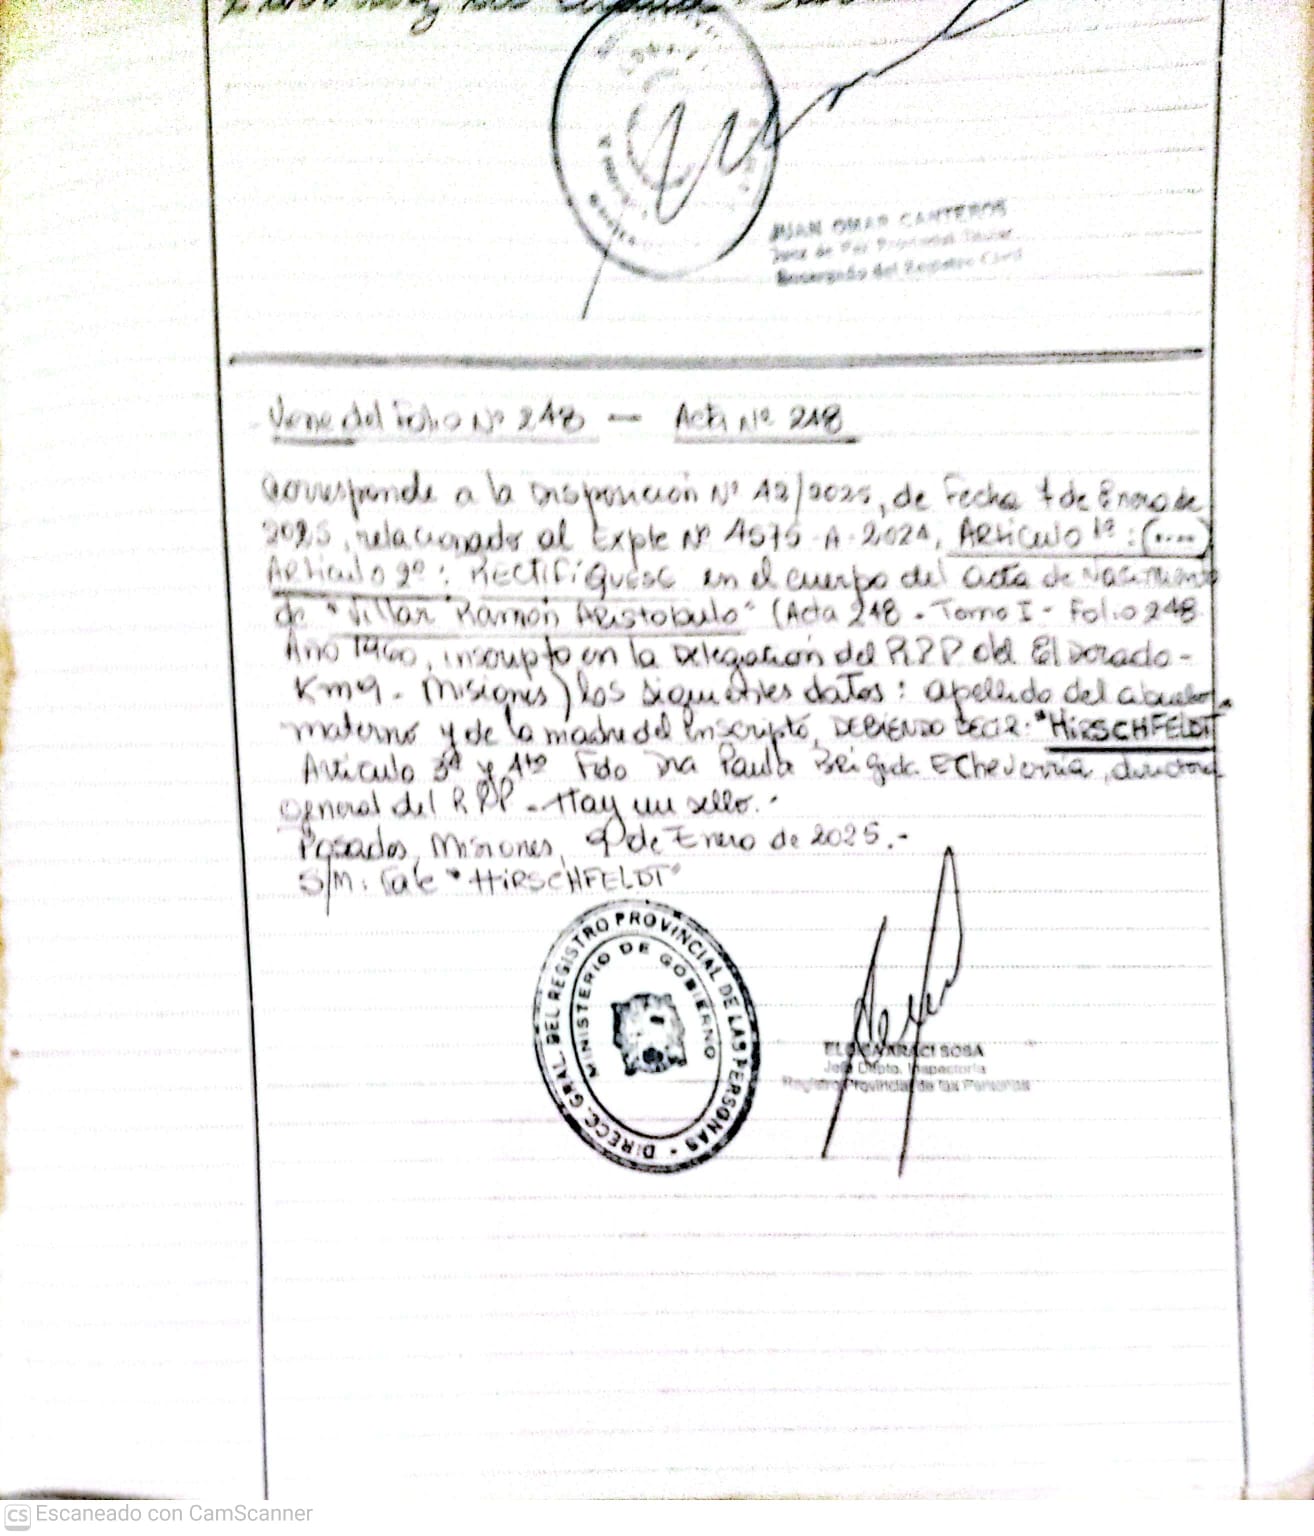 JUAN OMAR CANTEROS
Juez de Paz Provincial Titular
Encargado del Registro Civil
Viene del Folio Nº 248 — Acta Nº 248
Corresponde a la Disposición Nº 42/2025, de Fecha 7 de Enero de
2025, relacionado al Expte Nº 4575-A-2024, Artículo 1º: (....)
Artículo 2º: RECTIFÍQUESE en el cuerpo del acta de Nacimiento
de "Villar Ramón Aristobulo" (Acta 248 - Tomo I - Folio 248
Año 1960, inscripto en la Delegación del R.P.P del El Dorado -
Km 9 - Misiones) los siguientes datos: apellido del abuelo
materno y de la madre del Inscripto, DEBIENDO DECIR: "HIRSCHFELDT
Artículo 3º y 4to Fdo Dra Paula Brigida Echeverria, directora
general del RPP - Hay un sello.-
Posadas, Misiones, 9 de Enero de 2025.-
S/M: Vale "HIRSCHFELDT"
DIRECC. GRAL. DEL REGISTRO PROVINCIAL DE LAS PERSONAS
MINISTERIO DE GOBIERNO
ARACI SOSA
Jefa Dpto. Inspectoría
Registro Provincial de las Personas
CS Escaneado con CamScanner